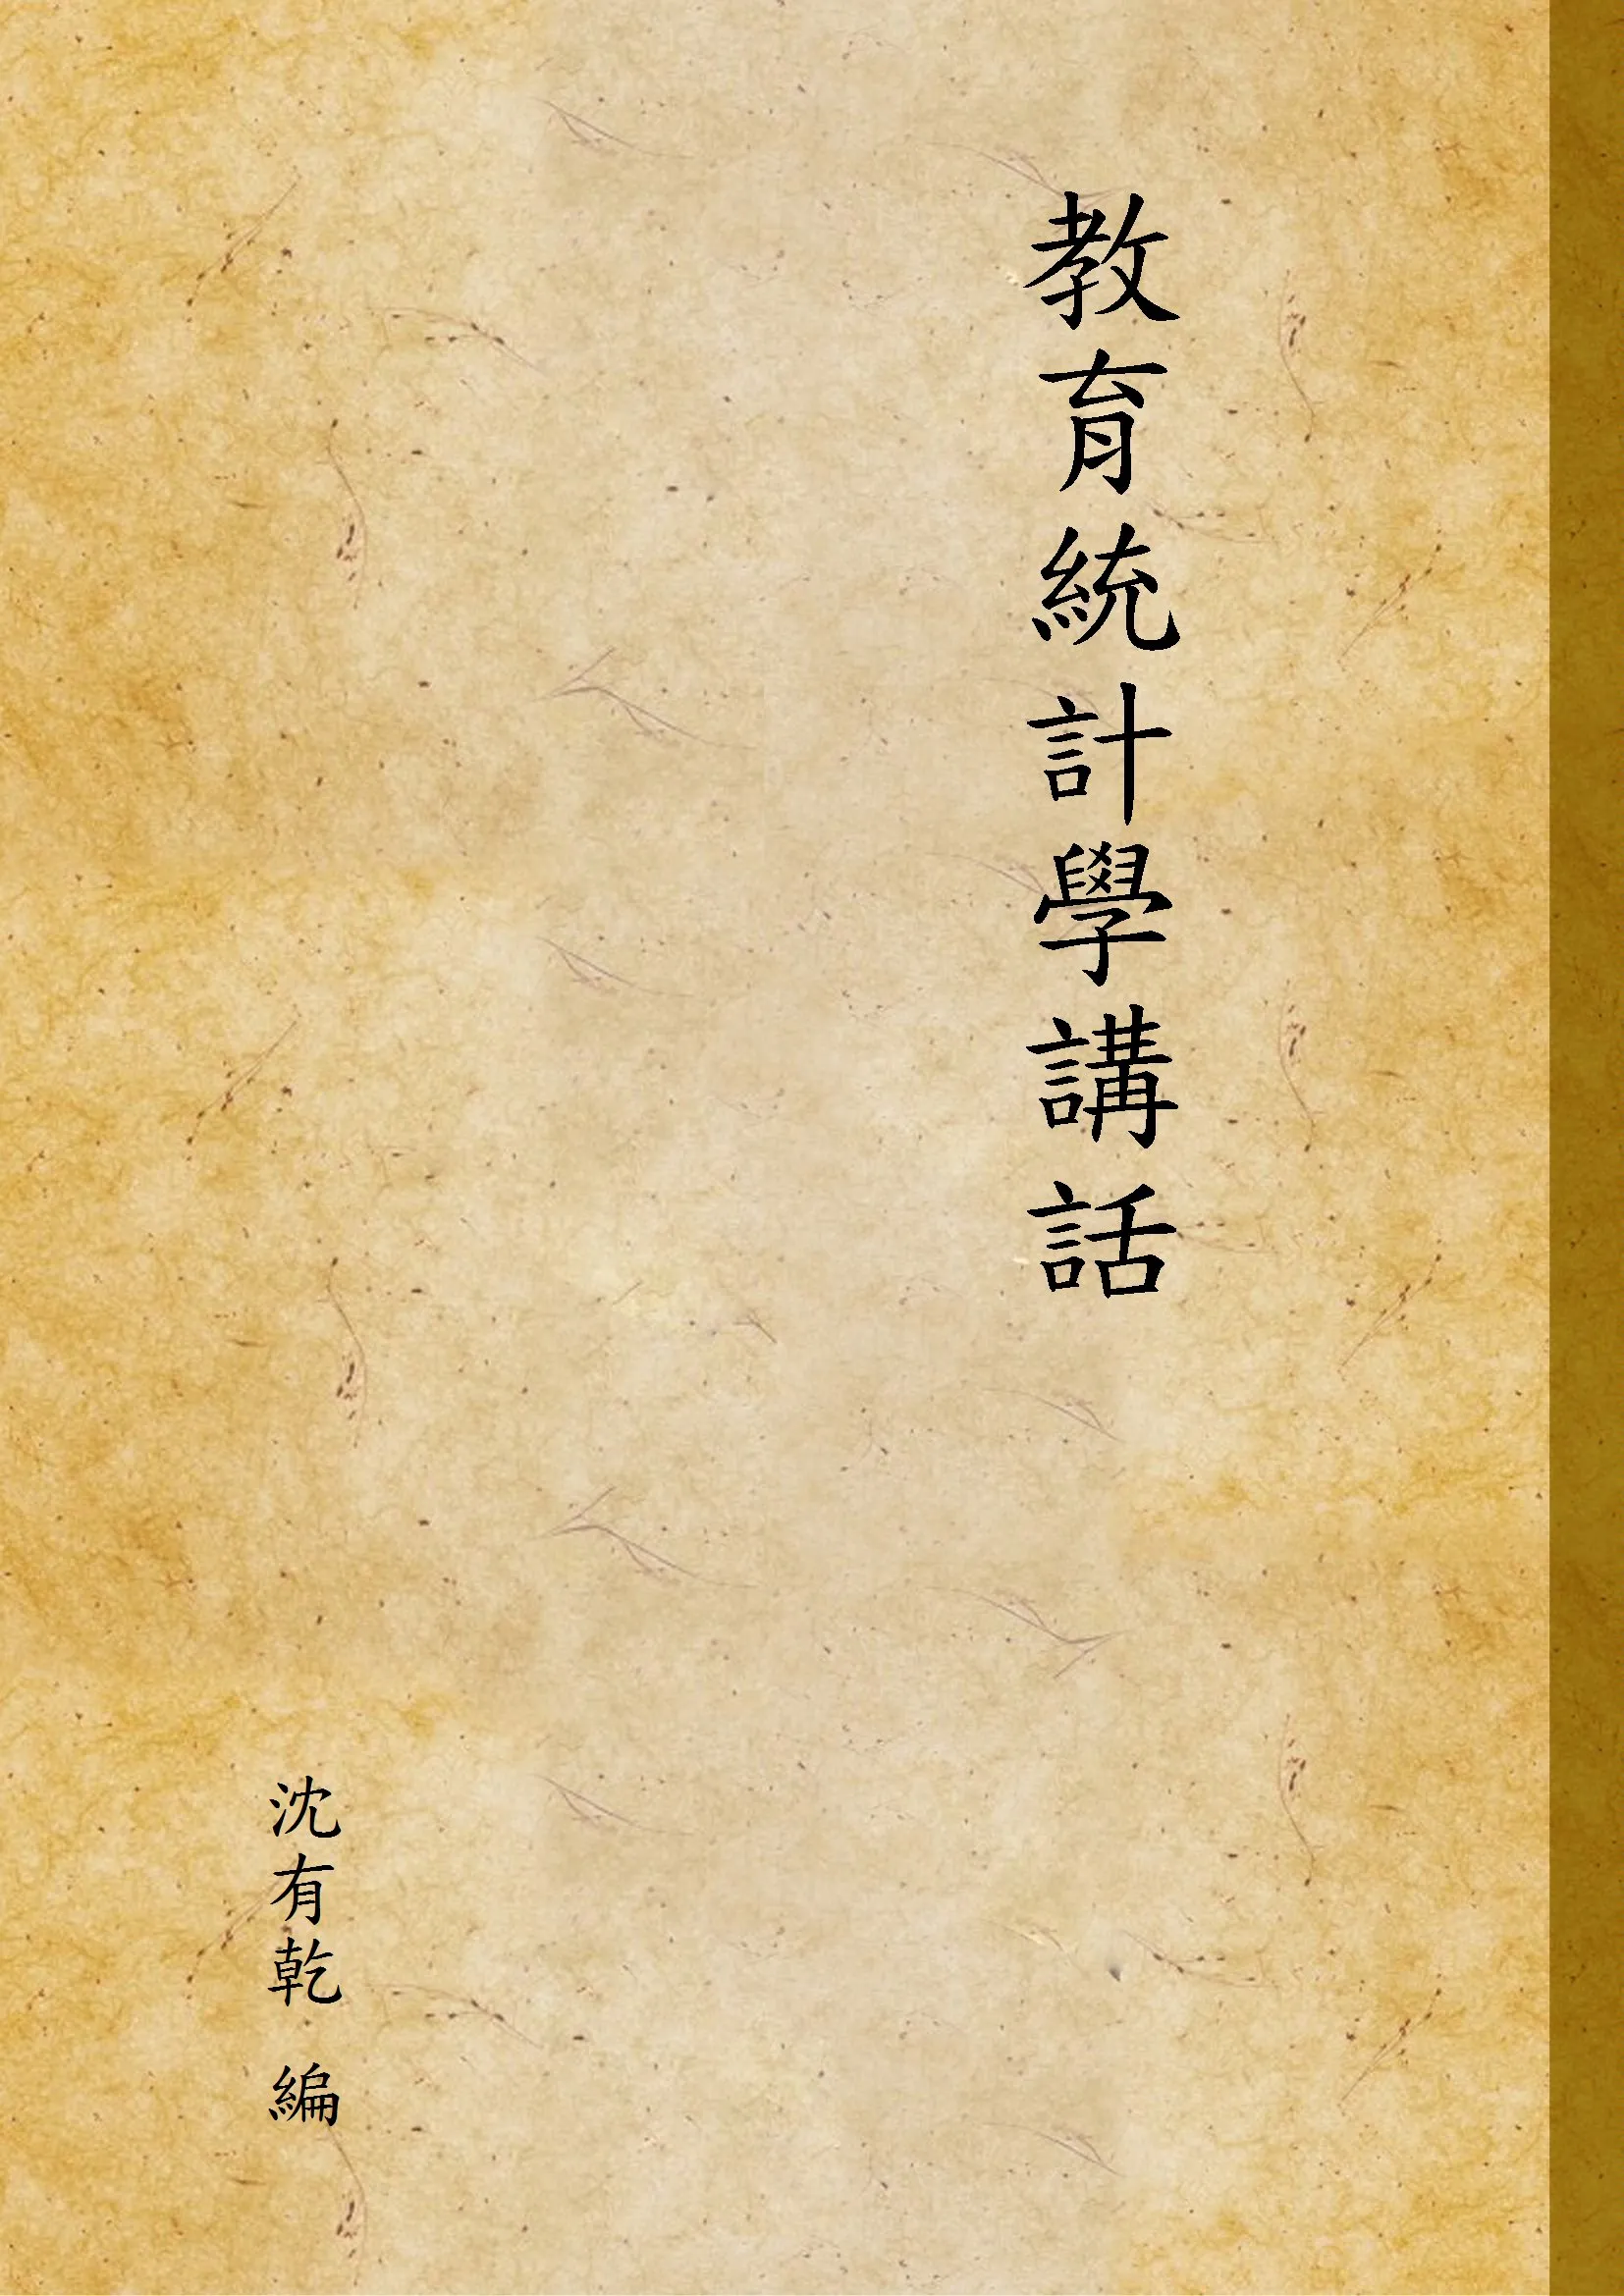 教育統計學講話
沈有乾 編